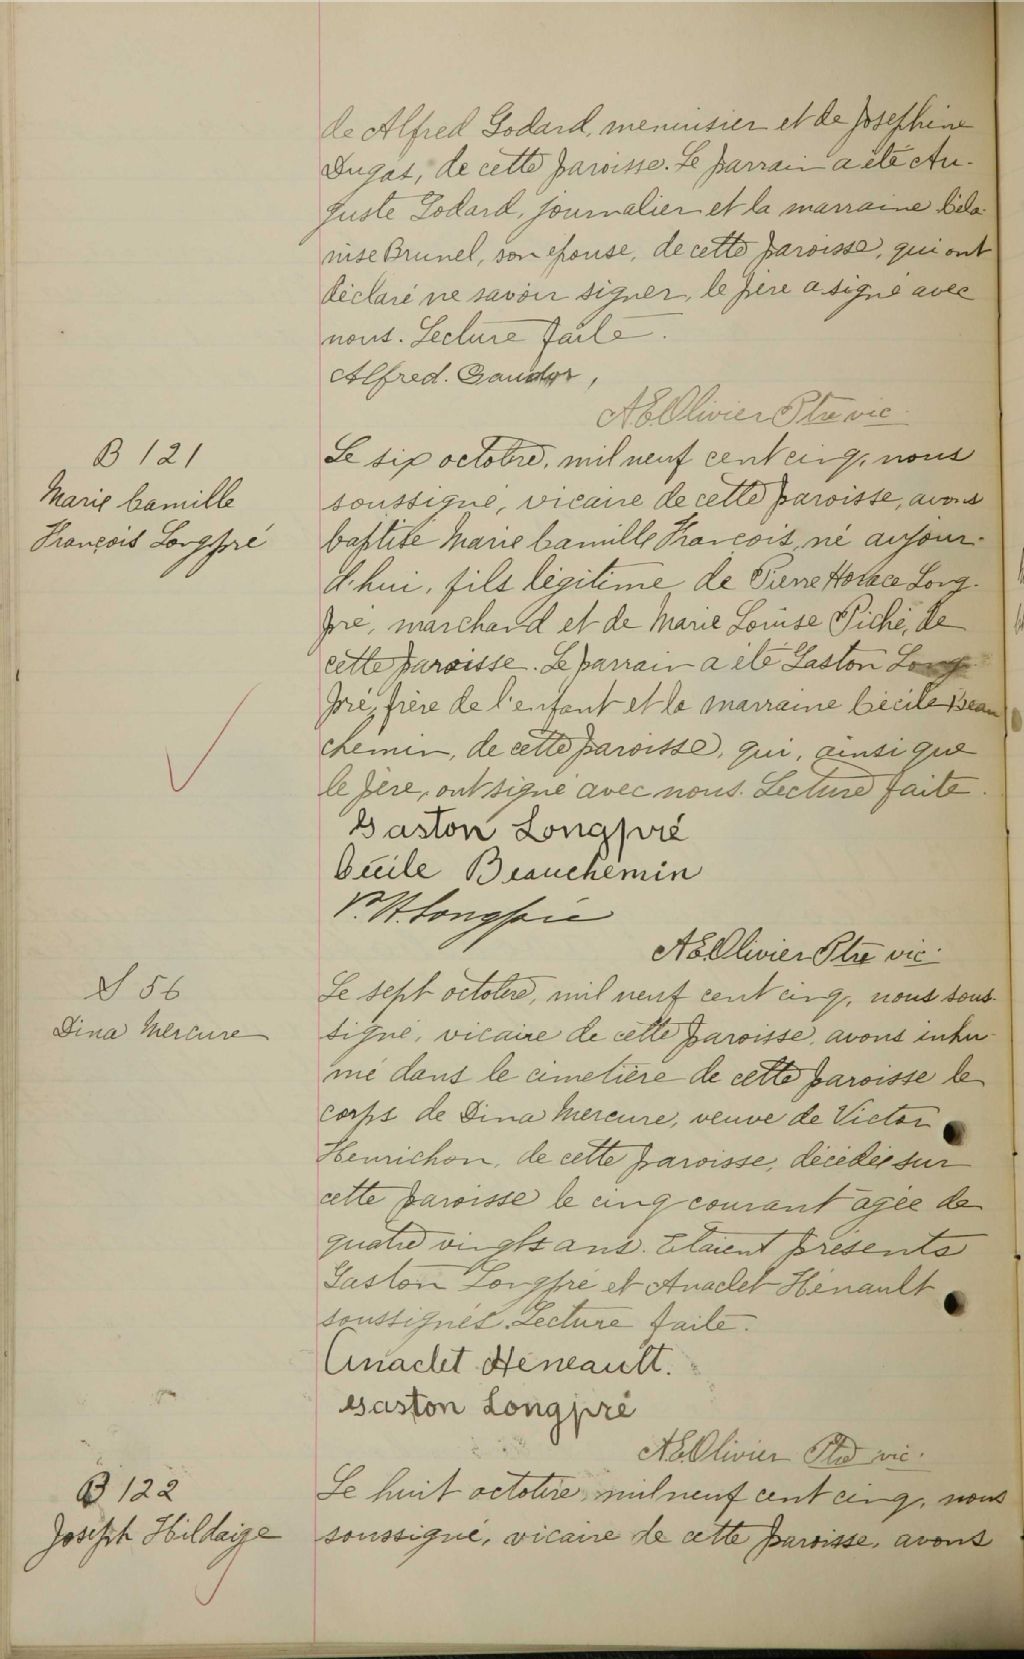 de Alfred Godard, menuisier et de Josephine
Dugas, de cette paroisse. Le parrain a été Au-
guste Godard, journalier et la marraine Céla-
nise Brunel, son épouse, de cette paroisse, qui ont
déclaré ne savoir signer, le père a signé avec
nous. Lecture faite.
Alfred.
AEOlivier Ptre vic.
B 121
Marie Camille
François Longpré
Le six octobre, mil neuf cent cinq, nous
soussigné, vicaire de cette paroisse, avons
baptisé Marie Camille François, né aujour-
d'hui, fils légitime de Pierre Horace Long-
pré, marchand et de Marie Louise Piché, de
cette paroisse. Le parrain a été Gaston Long
pré, frère de l'enfant et la marraine Cécile Beau
chemin, de cette paroisse, qui, ainsi que
le père, ont signé avec nous. Lecture faite.
Gaston Longpré
Cécile Beauchemin
P. H. Longpré
AEOlivier Ptre vic.
S 56
Dina Mercure
Le sept octobre, mil neuf cent cinq, nous sous-
signé, vicaire de cette paroisse, avons inhu-
mé dans le cimetière de cette paroisse le
corps de Dina Mercure, veuve de Victor
Henrichon, de cette paroisse, décédée sur
cette paroisse le cinq courant âgée de
quatre vingts ans. Etaient présents
Gaston Longpré et Anaclet Hénault
soussignés. Lecture faite.
Anaclet Héneault.
Gaston Longpré
AEOlivier Ptre vic.
B 122
Joseph Hildaige
Le huit octobre, mil neuf cent cinq, nous
soussigné, vicaire de cette paroisse, avons